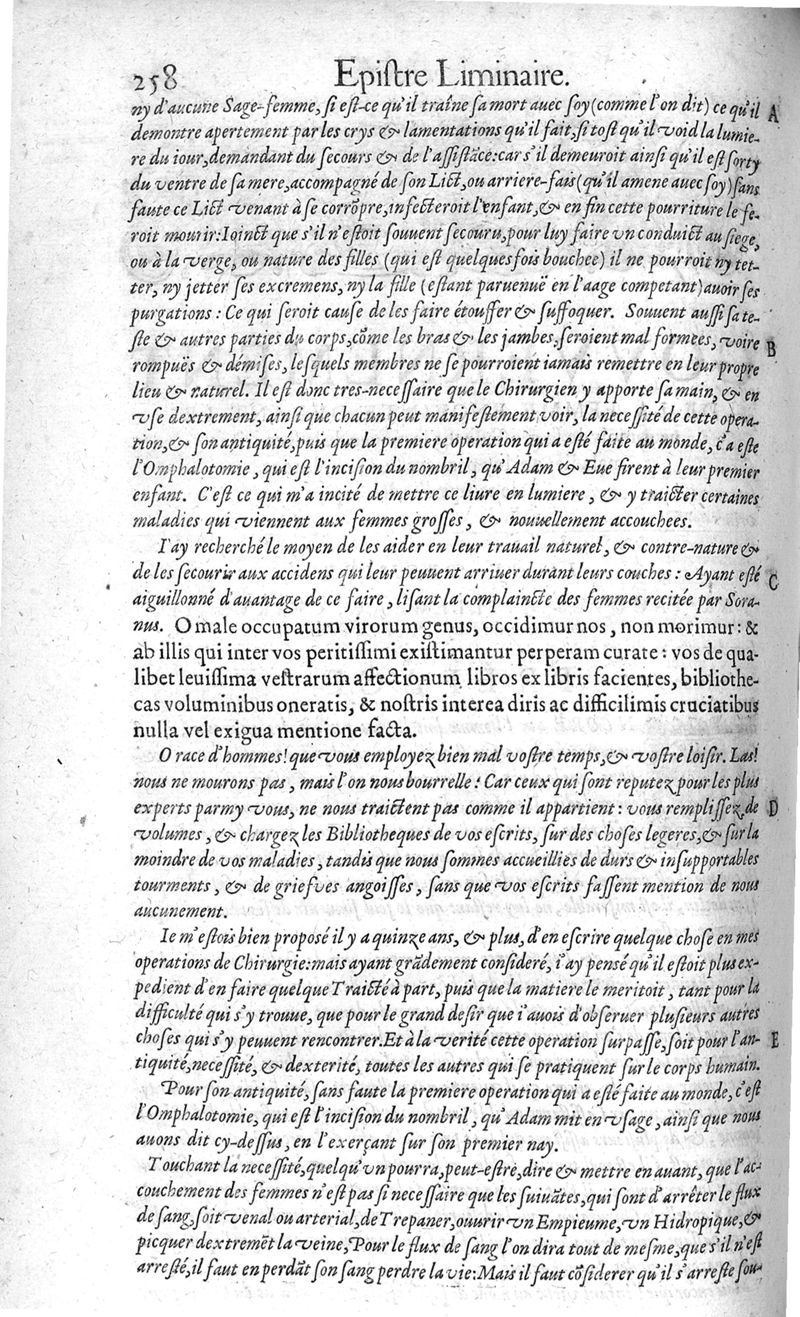 258 Epistre Liminaire.
ny d'aucune Sage-femme, si est-ce qu'il traîne sa mort auec soy (comme l'on dit) ce qu'il A
demontre apertement par les crys & lamentations qu'il fait, si tost qu'il void la lumie-
re du iour, demandant du secours & de l'assistãce: car s'il demeuroit ainsi qu'il est sorty
du ventre de sa mere, accompagné de son Lict, ou arriere-fais (qu'il amene auec soy) sans
faute ce Lict venant à se corrõpre, infecteroit l'enfant, & en fin cette pourriture le fe-
roit mourir: Ioinct que s'il n'estoit souuent secouru, pour luy faire vn conduict au siege,
ou à la verge, ou nature des filles (qui est quelquesfois bouchee) il ne pourroit ny tet-
ter, ny jetter ses excremens, ny la fille (estant paruenuë en l'aage competant) auoir ses
purgations: Ce qui seroit cause de les faire étouffer & suffoquer. Souuent aussi sa te-
ste & autres parties du corps, cõme les bras & les jambes, seroient mal formees, voire B
rompuës & démises, lesquels membres ne se pourroient iamais remettre en leur propre
lieu & naturel. Il est donc tres-necessaire que le Chirurgien y apporte sa main, & en
vse dextrement, ainsi que chacun peut manifestement voir, la necessité de cette opera-
tion, & son antiquité, puis que la premiere operation qui a esté faite au monde, c'a este
l'Omphalotomie, qui est l'incision du nombril, qu'Adam & Eue firent à leur premier
enfant. C'est ce qui m'a incité de mettre ce liure en lumiere, & y traicter certaines
maladies qui viennent aux femmes grosses, & nouuellement accouchees.
I'ay recherché le moyen de les aider en leur trauail naturel, & contre-nature &
de les secourir aux accidens qui leur peuuent arriuer durant leurs couches: Ayant esté C
aiguillonné d'auantage de ce faire, lisant la complaincte des femmes recitée par Sora-
nus. O male occupatum virorum genus, occidimur nos, non morimur: &
ab illis qui inter vos peritissimi existimantur perperam curate: vos de qua-
libet leuissima vestrarum affectionum libros ex libris facientes, bibliothe-
cas voluminibus oneratis, & nostris interea diris ac difficilimis cruciatibus
nulla vel exigua mentione facta.
O race d'hommes! que vous employez bien mal vostre temps, & vostre loisir. Las!
nous ne mourons pas, mais l'on nous bourrelle: Car ceux qui sont reputez pour les plus
experts parmy vous, ne nous traictent pas comme il appartient: vous remplissez de D
volumes, & chargez les Bibliotheques de vos escrits, sur des choses legeres, & sur la
moindre de vos maladies, tandis que nous sommes accueillies de durs & insupportables
tourments, & de griefves angoisses, sans que vos escrits fassent mention de nous
aucunement.
Ie m'estois bien proposé il y a quinze ans, & plus, d'en escrire quelque chose en mes
operations de Chirurgie: mais ayant grãdement consideré, i'ay pensé qu'il estoit plus ex-
pedient d'en faire quelque Traicté à part, puis que la matiere le meritoit, tant pour la
difficulté qui s'y trouue, que pour le grand desir que i'auois d'obseruer plusieurs autres
choses qui s'y peuuent rencontrer. Et à la verité cette operation surpasse, soit pour l'an- E
tiquité, necessité, & dexterité, toutes les autres qui se pratiquent sur le corps humain.
Pour son antiquité, sans faute la premiere operation qui a esté faite au monde, c'est
l'Omphalotomie, qui est l'incision du nombril, qu'Adam mit en vsage, ainsi que nous
auons dit cy-dessus, en l'exerçant sur son premier nay.
Touchant la necessité, quelqu'vn pourra, peut-estre, dire & mettre en auant, que l'ac-
couchement des femmes n'est pas si necessaire que les suiuãtes, qui sont d'arrêter le flux
de sang, soit venal ou arterial, de Trepaner, ouurir vn Empieume, vn Hidropique, &
picquer dextremẽt la veine, Pour le flux de sang l'on dira tout de mesme, que s'il n'est
arresté, il faut en perdãt son sang perdre la vie: Mais il faut cõsiderer qu'il s'arreste sou-